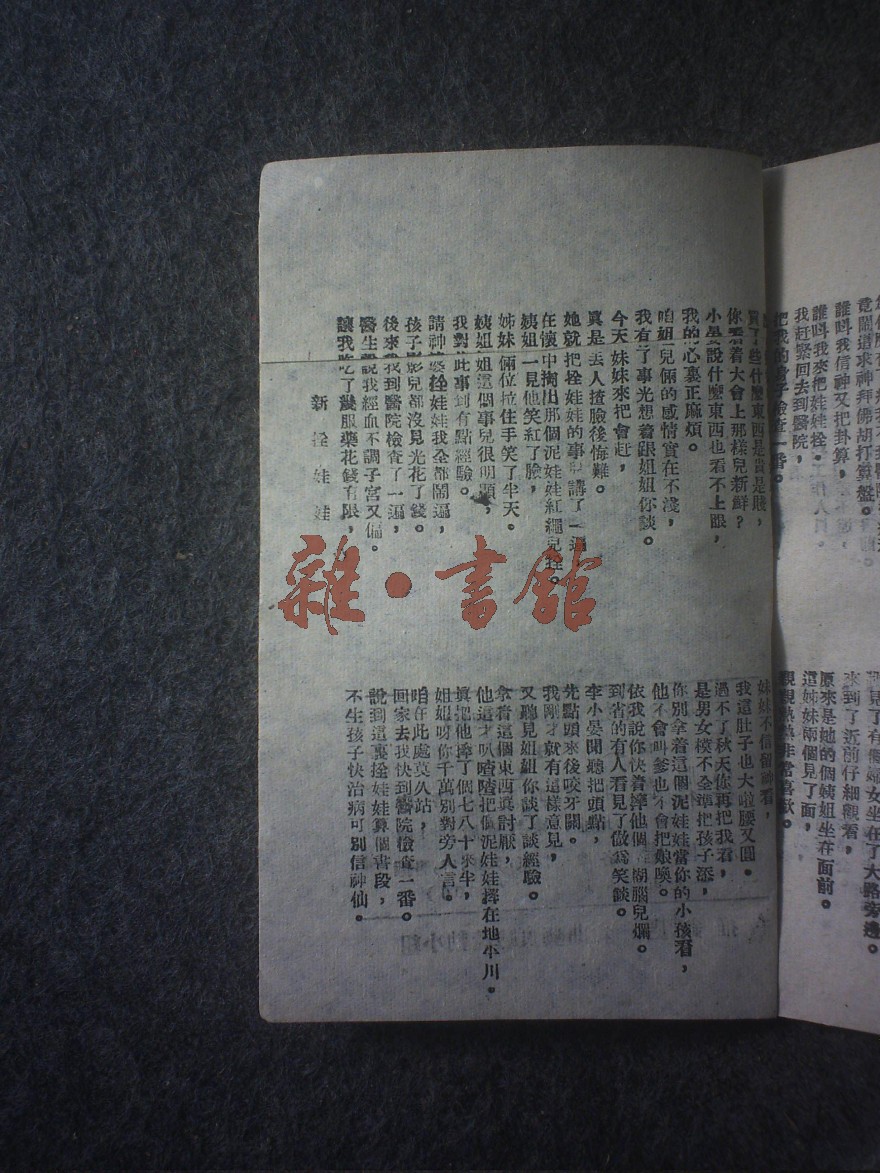 竟鬧道求神拜佛胡打算盤。
誰叫我信神又把卦算,
誰叫我來把娃娃拴。
我趕緊回去到醫院,
把我的身子檢查一番。
有個婦女坐在了大路旁邊。
來到了近前仔細觀看,
原來是她的個姨姐坐在面前。
這姊妹兩個見了面,
親親熱熱非常喜歡。
買了些什麼東西是貴是賤,
你看着大會上那樣兒新鮮?
小晏說什麼東西也看不上眼,
我的心裏正麻煩。
咱姐兒倆的感情實在不淺,
我有了事光想着跟姐姐你談。
今天妹妹來把會趕,
真是丟人揸臉後悔難。
她就把拴娃娃的事兒講了一遍
在懷中掏出那個泥娃娃紅繩兒拴。
姨姐一見他笑紅了臉,
姊妹倆位拉住手笑了半天。
姨姐姐這悶事兒很明顯,
我對此事到有點經驗。
請神燒拴娃娃我全都鬧遍,
孩子影兒都沒見光花了錢。
後來我到醫院檢查了一遍,
醫生說我經血不調子宮又偏。
讓我吃了幾服藥花錢有限,
新拴娃娃
妹妹不信留神看,
我這肚子也大啦腰又圓。
過不了秋天你再把我看,
是男女模不全準把孩子添,
你別拿着這個泥娃娃當你的小孩看,
他不會叫爹也不會把娘喚。
依我說你快着摔他個糊腦兒爛。
到省的有人看見了做爲笑談。
李小晏聞聽把頭點,
先點頭來後咬牙關。
我剛才就有這樣意見,
又聽見姐姐你談了談經驗。
拿着這個東西眞討厭,
他這才叭喳喳把個泥娃娃摔在地平川。
眞把他摔了個七八十來半,
姐姐呀你千萬別對旁人言。
咱在此處莫久站,
回家去我快到醫院檢查一番。
說到這裏拴娃娃算個書段,
不生孩子快治病可別信神仙。
雜·書館